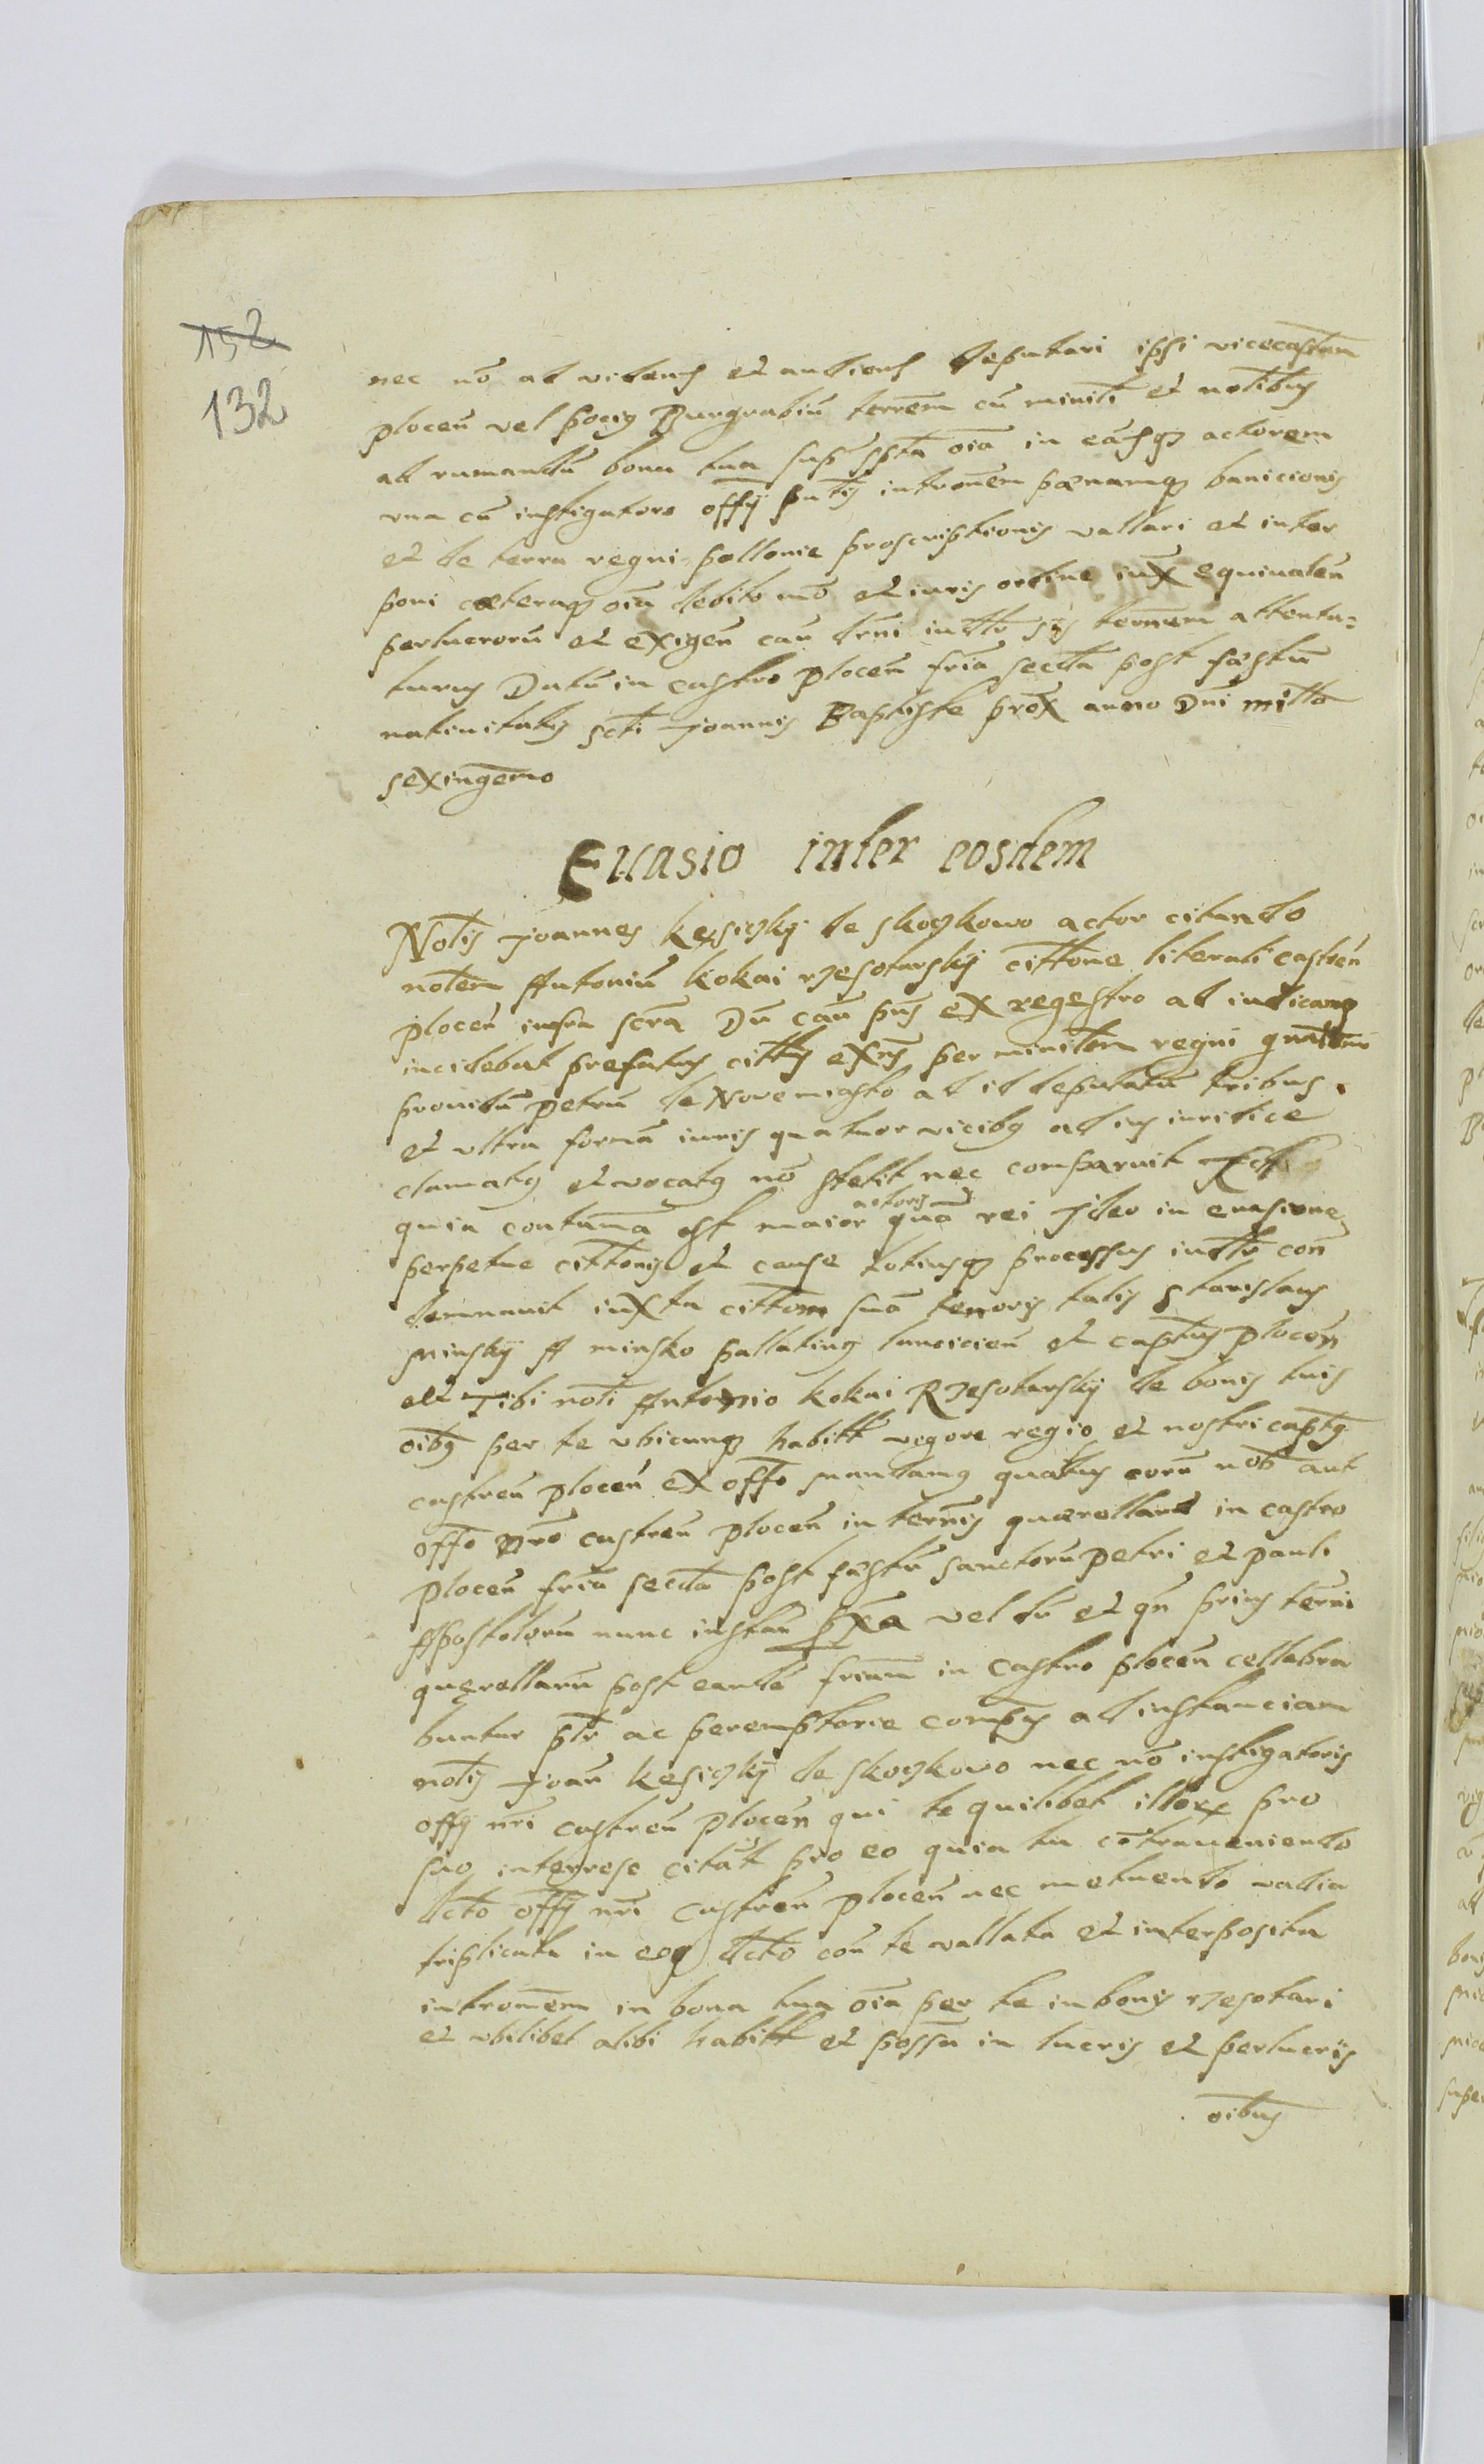 152
132
nec nō ad videnḋ et audienḋ deputari ipsi vicecaptm̄
plocen̄ vel pocius Burgrabiū terrem̄ cū miniti et notibus
ad rumandū bona tua sup spta oīa in eāsqꝫ actorem
vna cū instigatore offy pntis introm̄em pœnamqꝫ banicionis
et de terra regni pollonie proscriptionis vallari et inter
poni cæteraqꝫ oīa debito mō et iuris ordine iuX equivalen̄
perlucrorū et exigen̄ cau drn̄i iudtr sīs term̄em attentu=
turus Datū in castro plocen̄ fria secda post fæstū
nativitatis scti Joannis Baptiste prox anno Dni millo
sexingēmo
Evasio inter eosdem
Notis Joannes kęsiczky de skoczkowo actor citando
notem Antoniū kokai rzesotarsky cittone literali castren̄
plocen̄ infra scra Dū cau pns ex regestro ad iudicanꝫ
incidebat prefatus cittus exns per minitem regni gnatem
providū petrū de Novemiasto ad id deputatū tribus
et vltra formā iuris quatuor vicibꝫ ad ius iuridice
clamatꝫ et vocatꝫ nō stetit nec comparuit
quia contuma est maior actoris quā rei Ideo in evasione
perpetue cittonis et cause totiusqꝫ processus iudtr con
demnavit iuxta cittom suā tenoris talis Stanislaus
Minsky A minsko pallatinꝫ lancicien̄ et captus plocen̄
Tibi noti Antonio kokai Rzesotarsky de bonis tuis
oibꝫ per te vbicunqꝫ habitt vigore regio et nostri captꝫ
castren̄ plocen̄ ex offo mandamꝫ quatus corā nob aut
offo nro castren̄ plocen̄ in term̄is quærellarū in castro
plocen̄ fria secda post fæstū sanctorū petri et pauli
Apostolorū nunc instan̄ pxa vel dū et qn̄ prius term̄i
quęrellarū post eandē friam in castro plocen̄ cellebra
buntur ptr ac peremptorie comps ad instanciam
notis Joan̄ kesiczky de skoczkowo nec nō instigatoris
offy nri castren̄ plocen̄ qui te quilibet illorꝝ pro
suo interrese citāt pro eo quia tu cōtraveniendo
dcto offy nri castren̄ plocen̄ nec metuendo vadia
triplicata in eoqꝫ dcto con̄ te vallata et interposita
introm̄em in bona tua oīa per te in bonis rzesotari
et vbilibet alibi habitt et possa in lucris et perlucriis
oibus